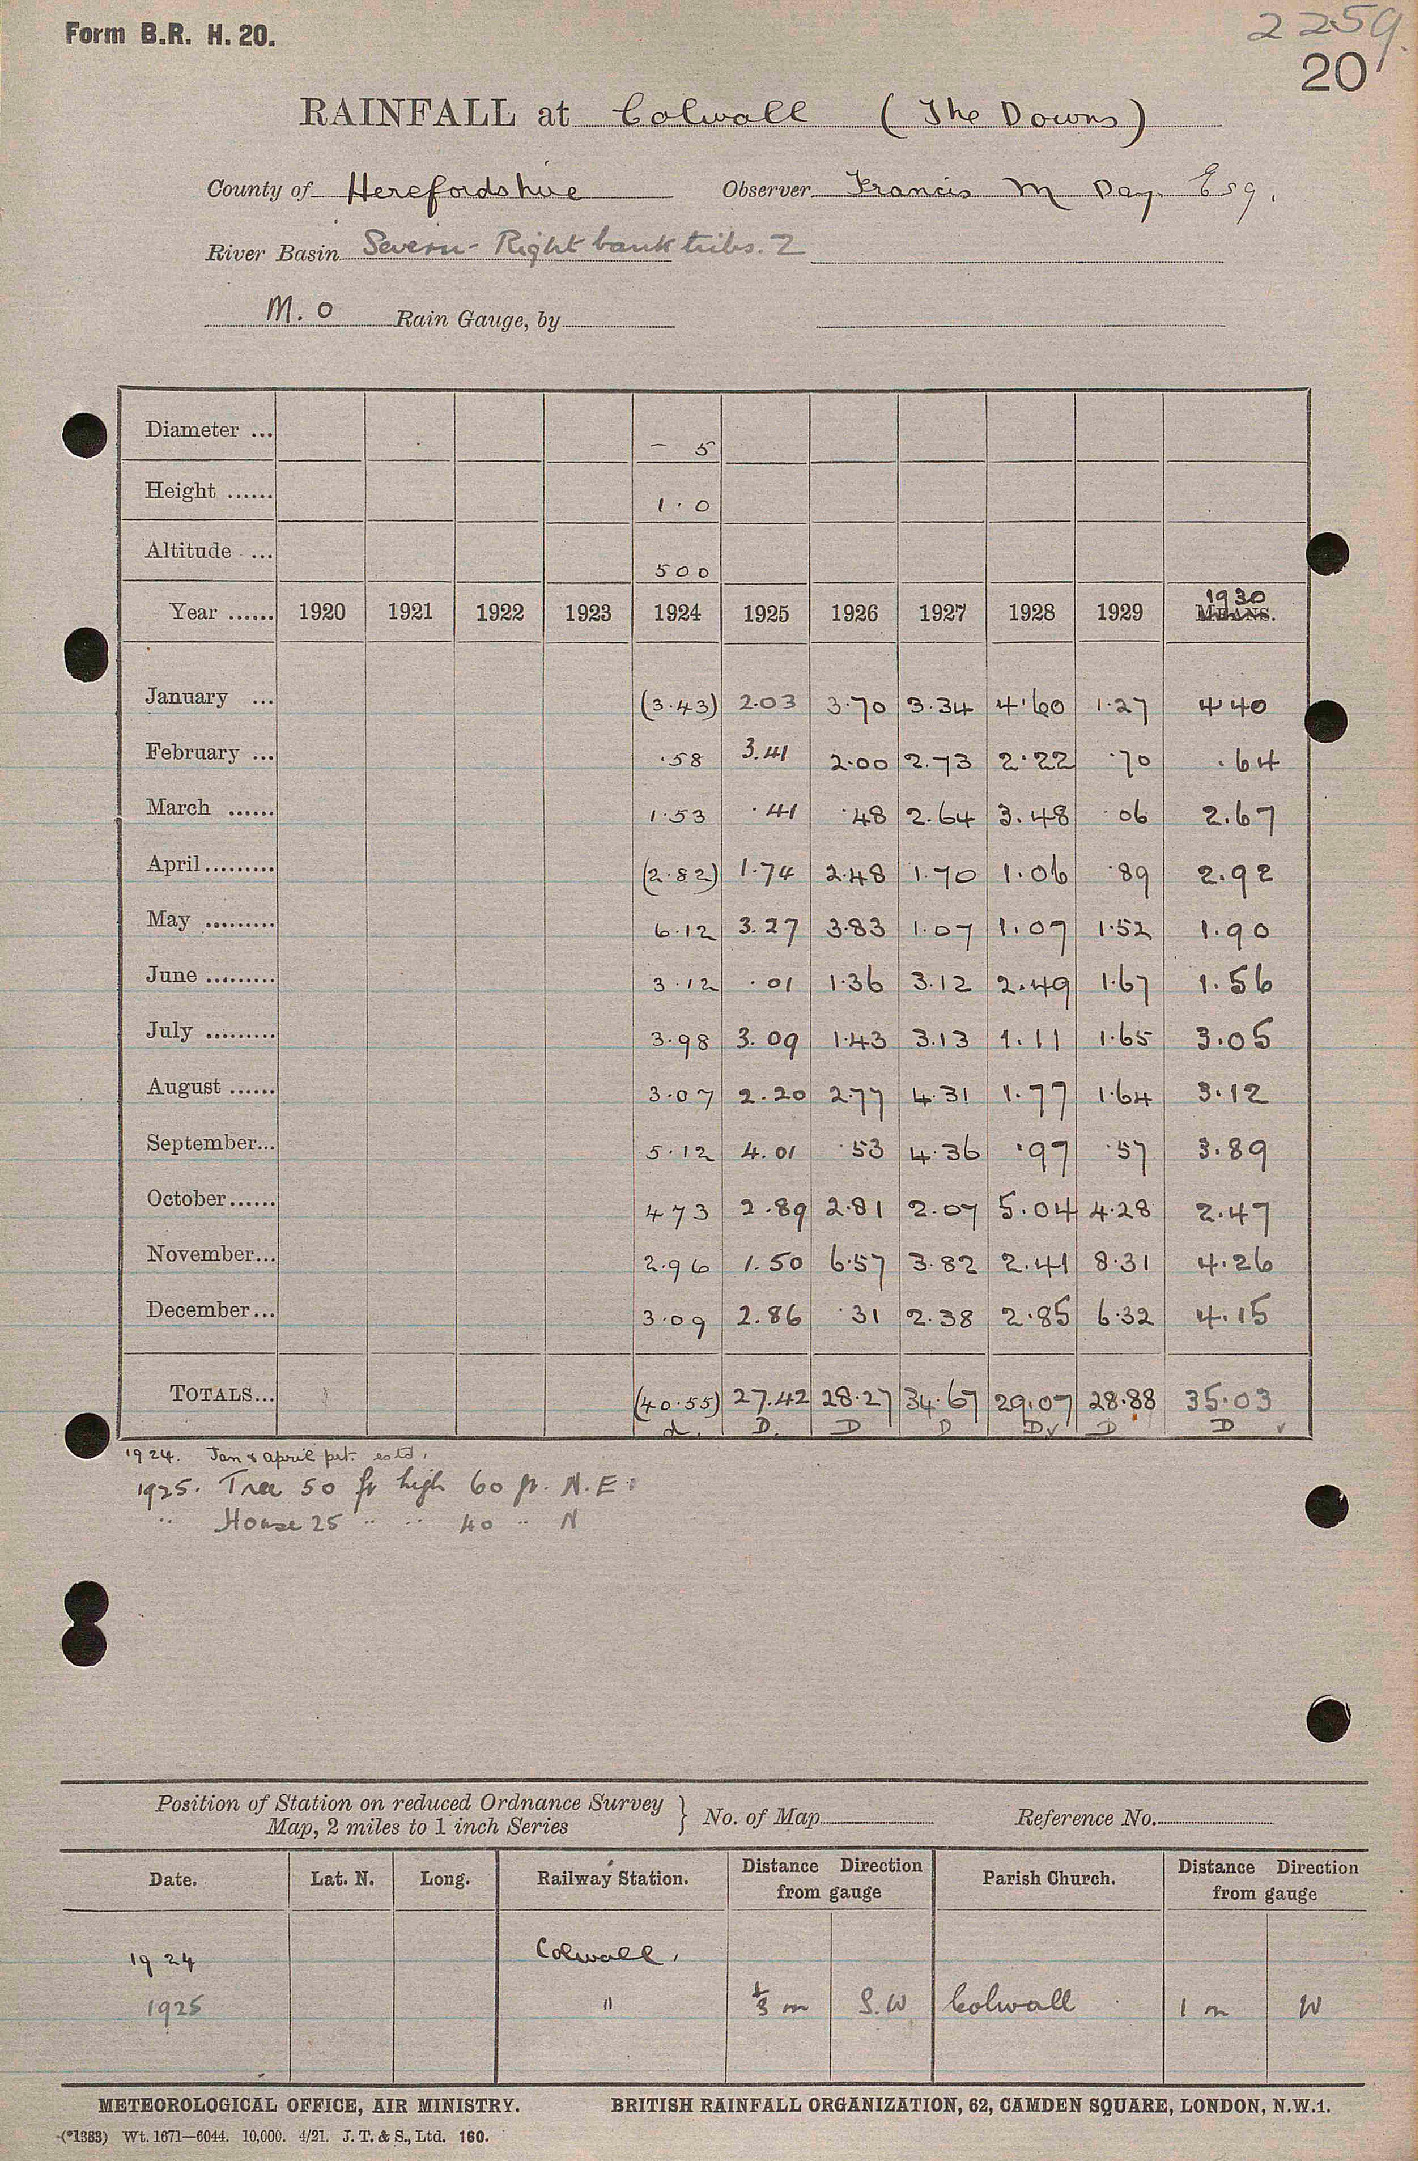 Form B.R. H. 20.
2259.
20
RAINFALL at Colwall (The Downs)
County of Herefordshire Observer Francis M Day Esq.
River Basin Severn - Right bank tribs. 2
M. O Rain Gauge, by
Diameter ... – 5
Height ...... 1.0
Altitude ... 500
1930
Year ...... 1920 1921 1922 1923 1924 1925 1926 1927 1928 1929 MEANS.
January ... (3.43) 2.03 3.70 3.34 4.60 1.27 4.40
February ... .58 3.41 2.00 2.73 2.22 .70 .64
March ...... 1.53 .41 .48 2.64 3.48 .06 2.67
April......... (2.82) 1.74 2.48 1.70 1.06 .89 2.92
May ......... 6.12 3.27 3.83 1.07 1.07 1.52 1.90
June ......... 3.12 .01 1.36 3.12 2.49 1.67 1.56
July ......... 3.98 3.09 1.43 3.13 1.11 1.65 3.05
August ...... 3.07 2.20 2.77 4.31 1.77 1.64 3.12
September... 5.12 4.01 .53 4.36 .97 .57 3.89
October...... 4.73 2.89 2.81 2.07 5.04 4.28 2.47
November... 2.96 1.50 6.57 3.82 2.41 8.31 4.26
December... 3.09 2.86 .31 2.38 2.85 6.32 4.15
TOTALS... (40.55) 27.42 28.27 34.67 29.07 28.88 35.03
d. D. D D D✓ D D ✓
1924. Jan & april prt. estd.
1925. Tree 50 ft high 60 ft. N.E.
" House 25 " " 40 " N
Position of Station on reduced Ordnance Survey
Map, 2 miles to 1 inch Series } No. of Map Reference No.
Date. Lat. N. Long. Railway Station. Distance Direction from gauge Parish Church. Distance Direction from gauge
1924 Colwall.
1925 " 1/3 m S.W Colwall 1 m W
METEOROLOGICAL OFFICE, AIR MINISTRY. BRITISH RAINFALL ORGANIZATION, 62, CAMDEN SQUARE, LONDON, N.W.1.
(*1383) Wt. 1671—6044. 10,000. 4/21. J. T. & S., Ltd. 160.